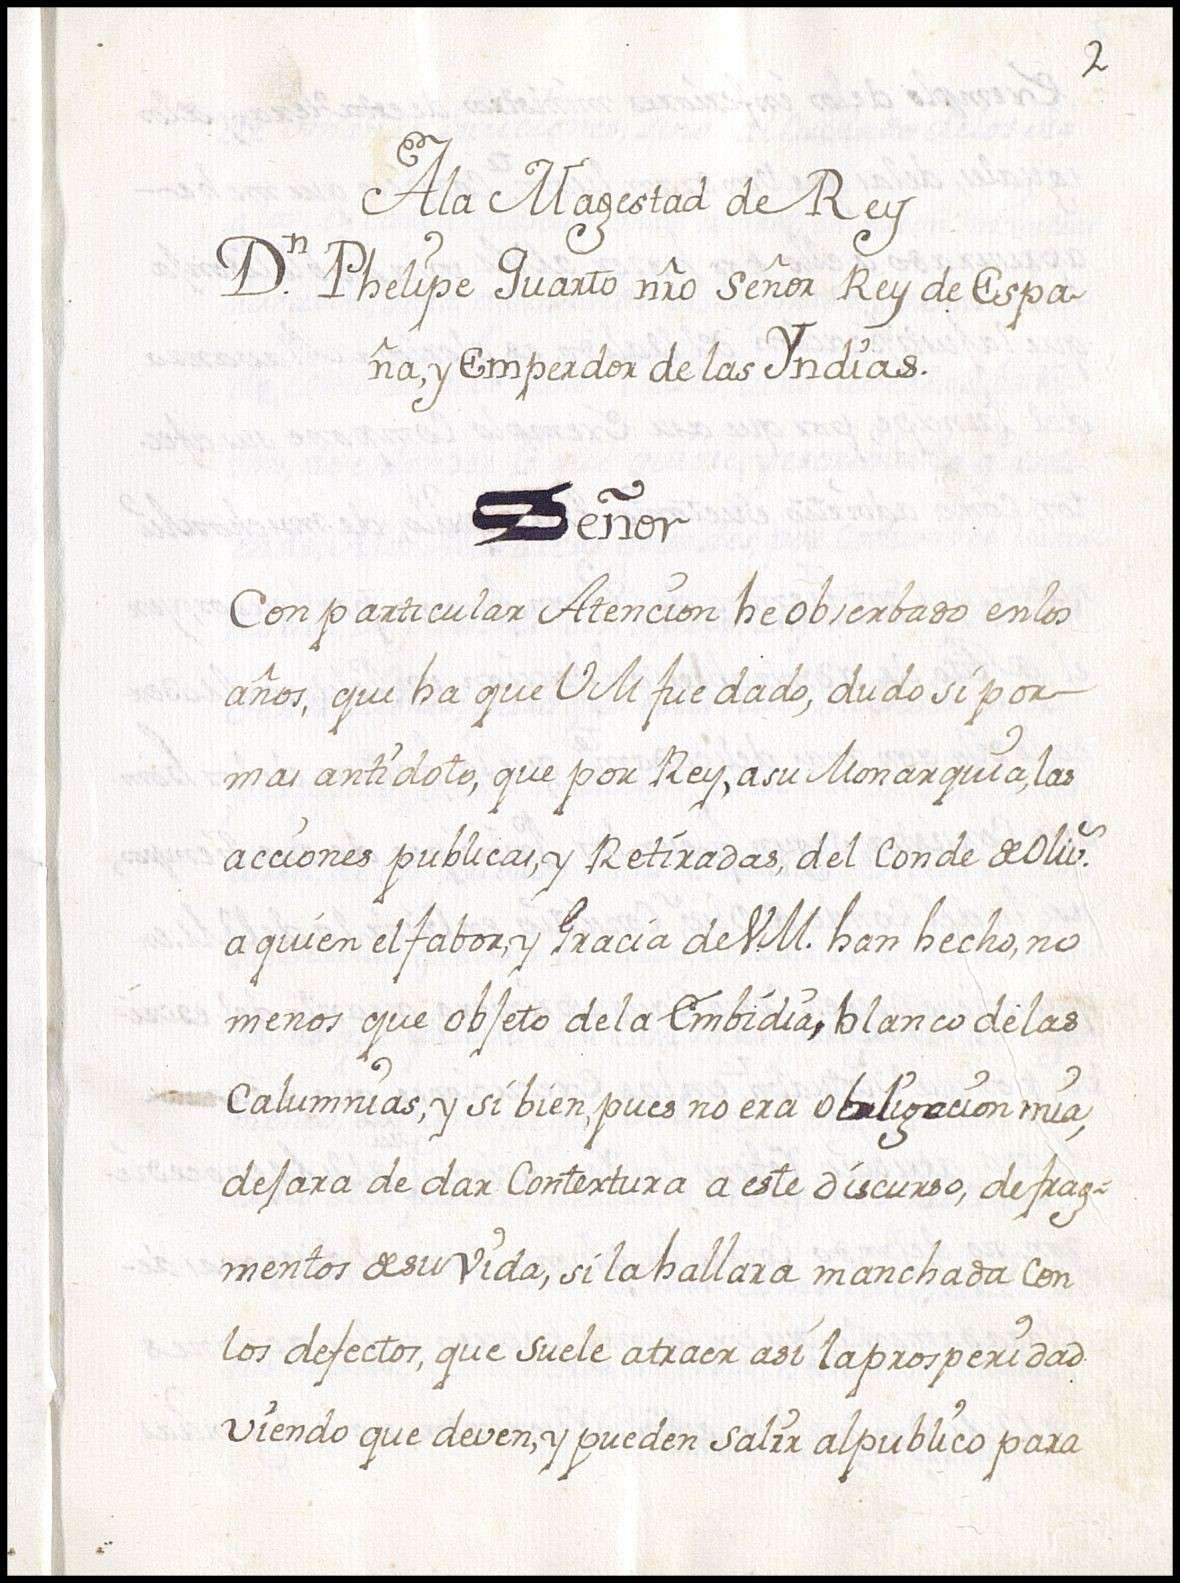 2
A la Magestad de Rey
D.n Phelipe Quarto nr̃o Señor Rey de Espa-
ña, y Emperdor de las Yndias.
Señor
Con particular Atencion he obserbado en los
años, que ha que VM fue dado, dudo si por
mas antidoto, que por Rey, a su Monarquia, las
acciones publicas, y Retiradas, del Conde de Oliv.s
a quien el fabor, y Gracia de V.M. han hecho, no
menos que objeto de la Embidia, blanco de las
Calumnias, y si bien, pues no era obligacion mia,
dejara de dar Contextura a este discurso, de frag-
mentos de su Vida, si la hallara manchada con
los defectos, que suele atraer asi la prosperidad
viendo que deven, y pueden salir al publico para